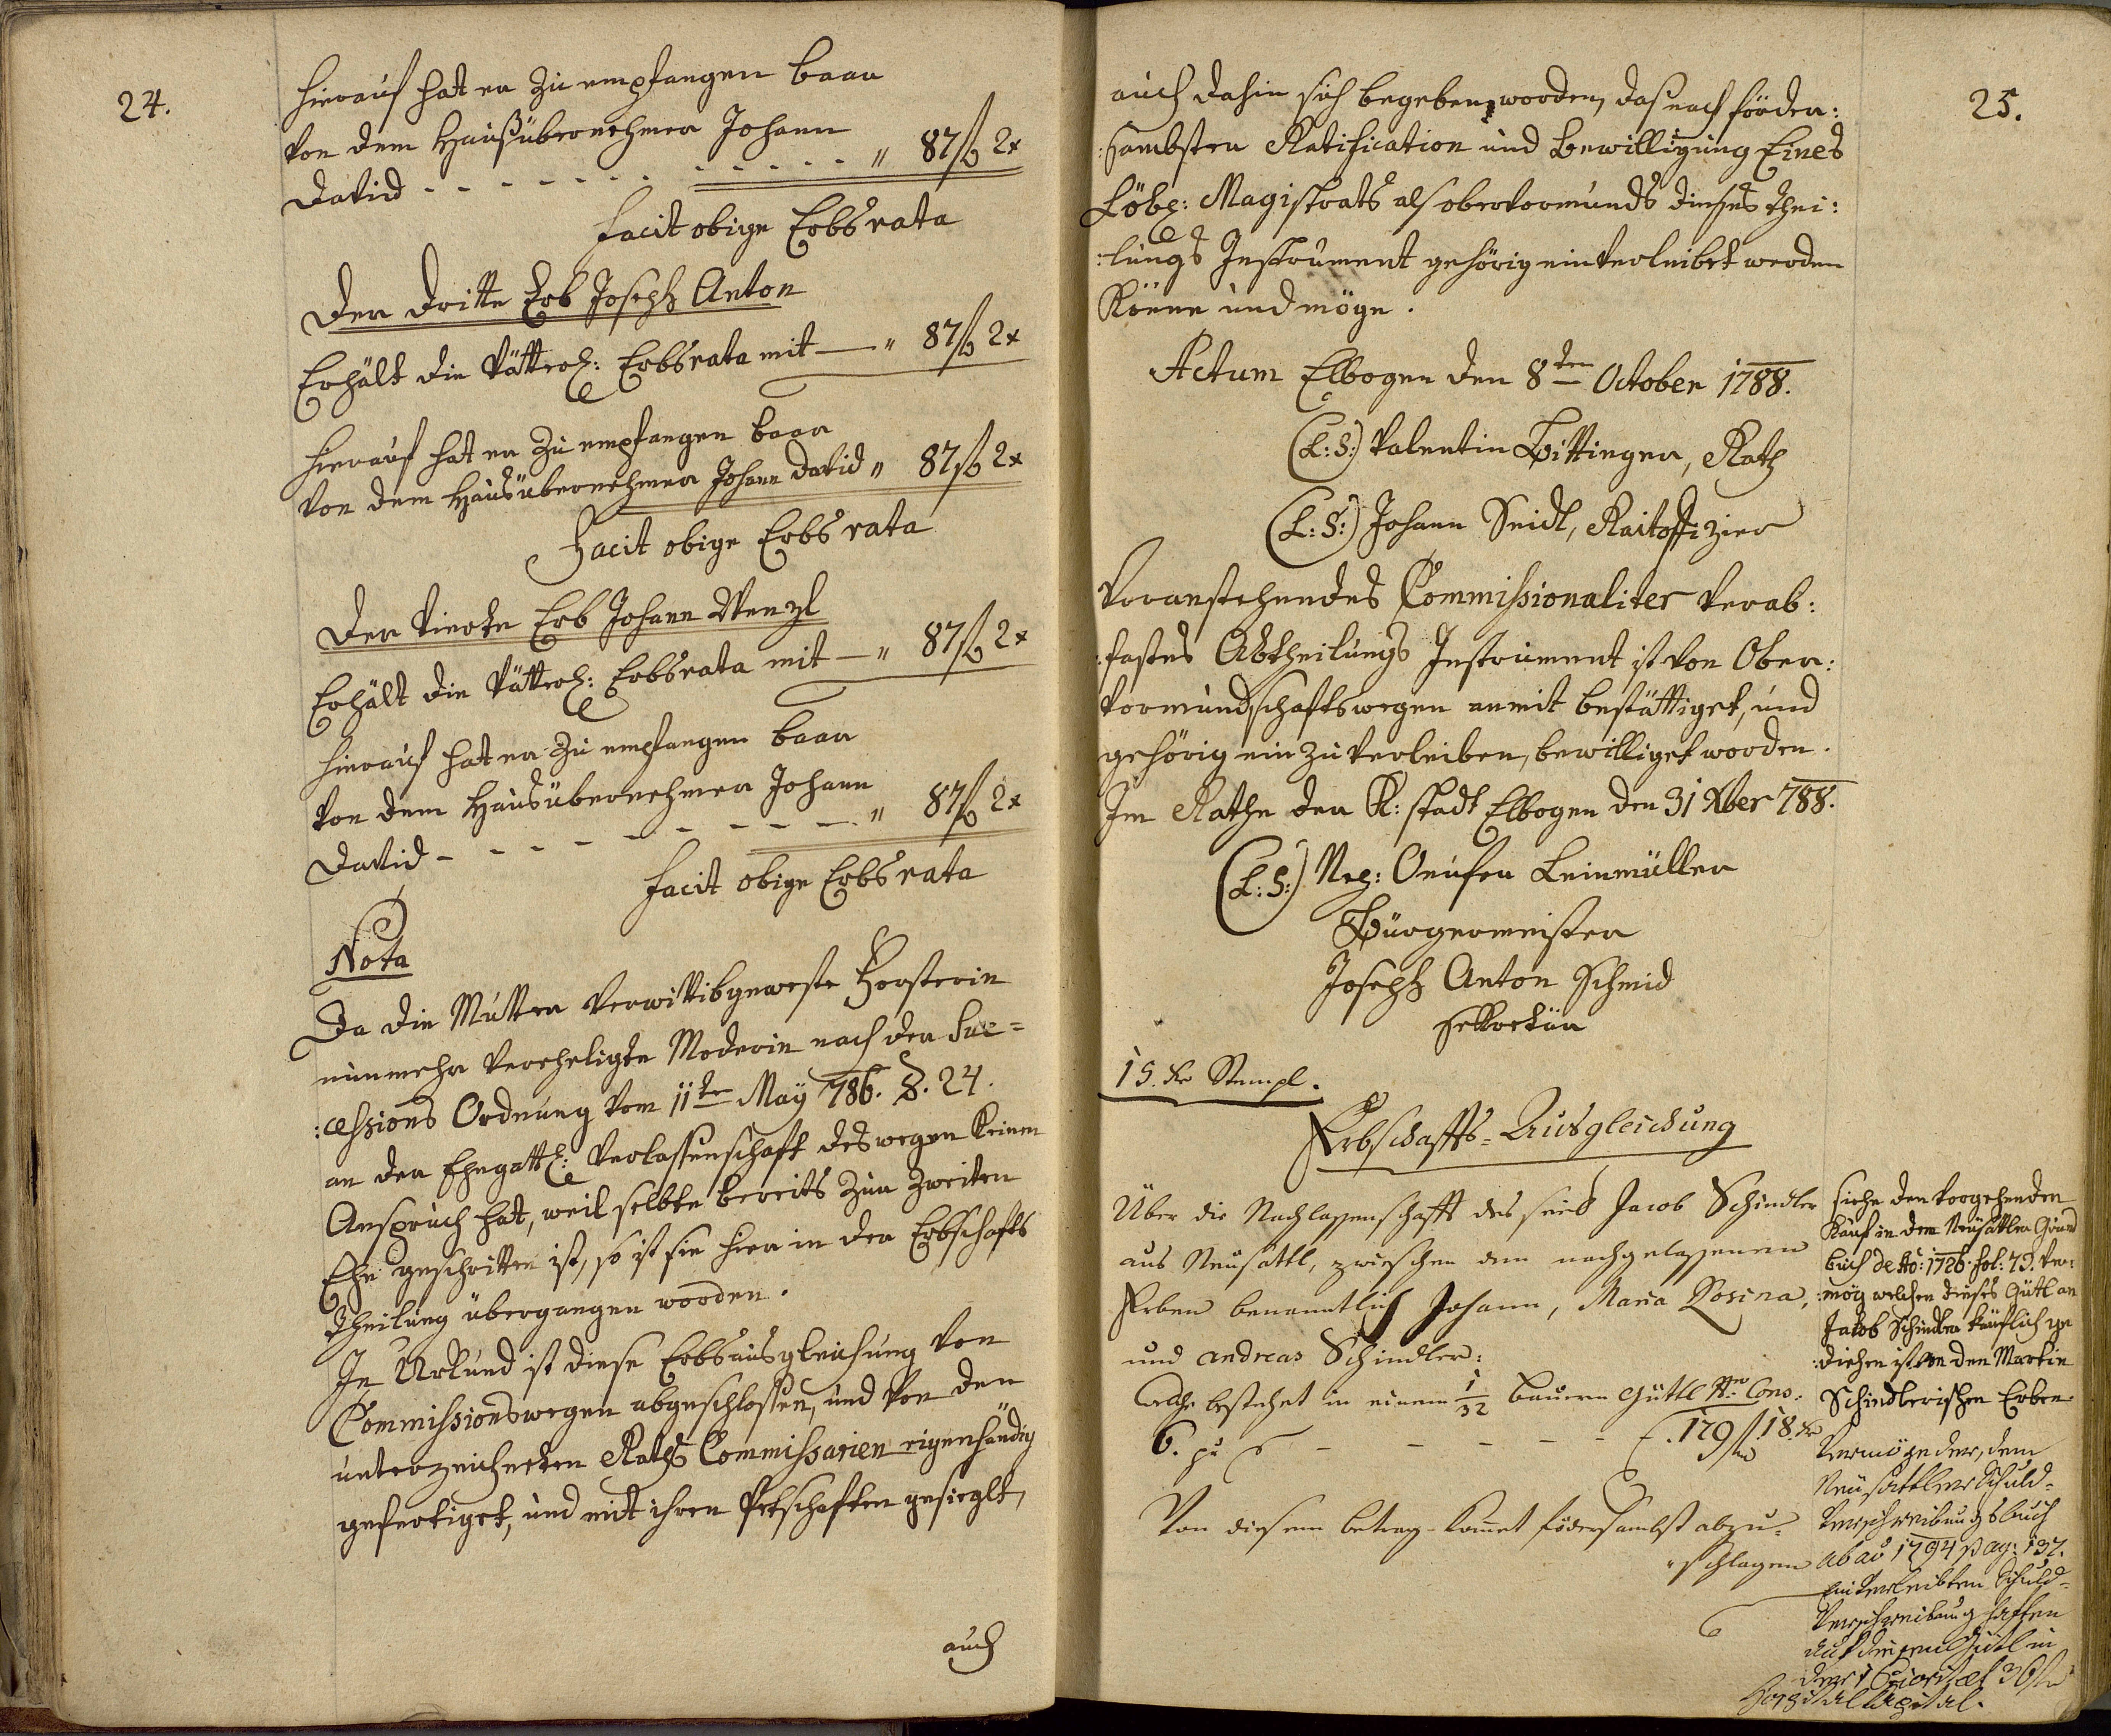 24.
Hierauf hat er zu empfangen baar
von dem Haußübernehmer Johann
David - - - - - - - - - - - - „ 87 f 2 x
facit obige Erbsrata
Der dritte Erb Joseph Anton
Erhält die Vätterl: Erbsrata mit — „ 87 f 2 x
Hierauf hat er zu empfangen baar
von dem Hausübernehmer Johann David „ 87 f 2 x
Facit obige Erbsrata
Der vierte Erb Johann Wenzl
Erhält die Vätterl: Erbsrata mit — „ 87 f 2 x
Hierauf hat er zu empfangen baar
von dem Hausübernehmer Johann
David - - - - - - - - - „ 87 f 2 x
facit obige Erbsrata
Nota
Da die Mutter verwittibgeweste Forsterin
nunmehr verehligte Moderin nach der Suc=
:cessions Ordnung vom 11ten May 786. §. 24.
an der Ehegattl: Verlassenschaft deswegen keinen
Anspruch hat, weil selbte bereits zur zweiten
Ehe geschritten ist, so ist sie hier in der Erbschafts
theilung übergangen worden.
In Urkund ist diese Erbsausgleichung von
Commissionswegen abgeschlossen, und von den
unterzeichneten Raths Commissarien eigenhändig
gefertiget, und mit ihren Petschaften gesieglt,
auch
25.
auch dahin sich begeben worden, das nach förder:
:sambsten Ratification und Bewilligung Eines
Löbl: Magistrats als obervormunds dieses thei:
:lungs Instrument gehörig einverleibet werden
Könne und möge.
Actum Elbogen den 8ten October 1788.
(L:S:) Valentin Bittinger, Rath
(L:S:) Johann Seidl, Raitoffizier
Voranstehendes Commissionaliter verab:
:fastes Abtheilungs Instrument ist von Ober:
vormundschaftswegen anmit bestättiget, und
gehörig einzuverleiben, bewilliget worden.
Im Rathe der K: stadt Elbogen den 31 Xber 788.
(L:S:) Leinmüller
Bürgermeister
Joseph Anton Schmid
sekretär
15. kr Stempl.
Erbschaffts=Ausgleichung
Über die Nachlassenschafft des seel Jacob Schindler
aus Neusattl, zwischen den nachgelassenen
Erben benanntlich Johann, Maria Rosina,
und Andreas Schindler:
welche bestehet in einem 1/32 bauern Güttl Nro Cons:
6. pr - - - - - - f. 179 f 18. kr
Von diesem betrag komet födersambst abzu=
=schlagen
siehe den vorgehenden
Kauf in dem Neusattler Grund
buch de Ao: 1726. fol: 73. ver:
:mög welchen dieses Gütl an
Jakob Schindler käuflich ge
:diehen ist von den Martin
Schindlerischen Erben
Vermöge der, dem
Neusattler Schuld=
verschreibungsbuch
ab ao 1794 pag: 137.
einverleibten Schuld=
verschreibung haften
auf diesem Gütl in
der 1 Priorität 36 f
Hospitalkapital.